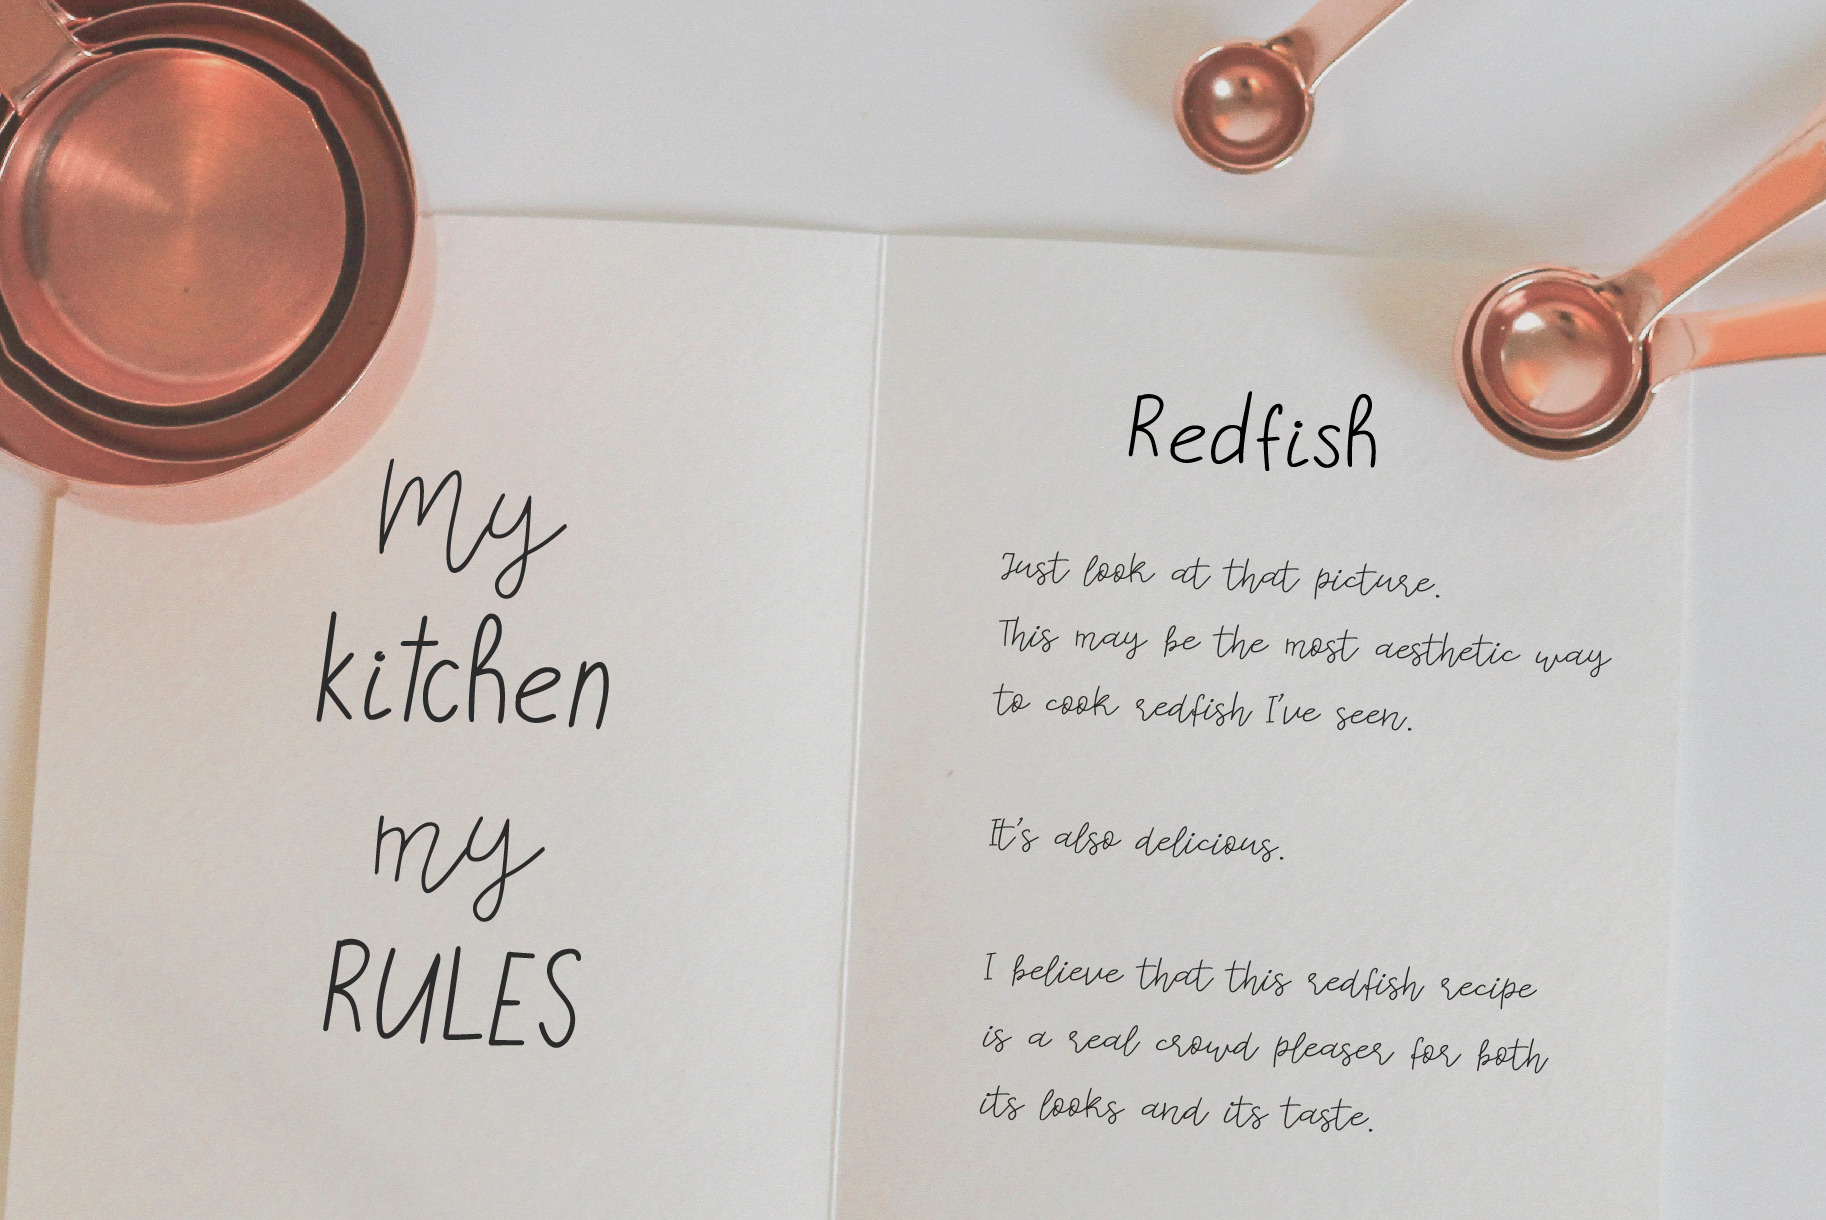 My
kitchen
my
RULES
Redfish
Just look at that picture.
This may be the most aesthetic way
to cook redfish I've seen.
It's also delicious.
I believe that this redfish recipe
is a real crowd pleaser for both
its looks and its taste.